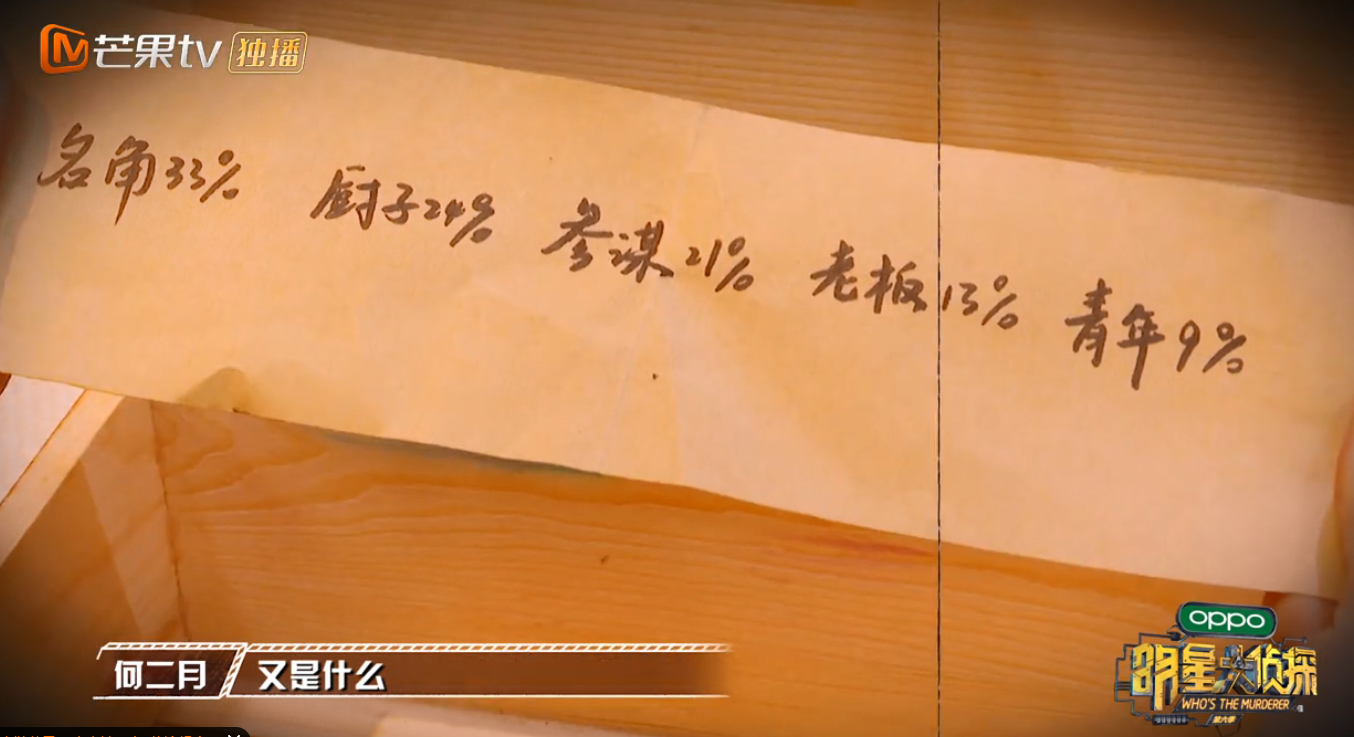 芒果tv 独播
名角33% 厨子24% 参谋21% 老板13% 青年9%
何二月 又是什么
oppo
明星大侦探
WHO'S THE MURDERER
第六季